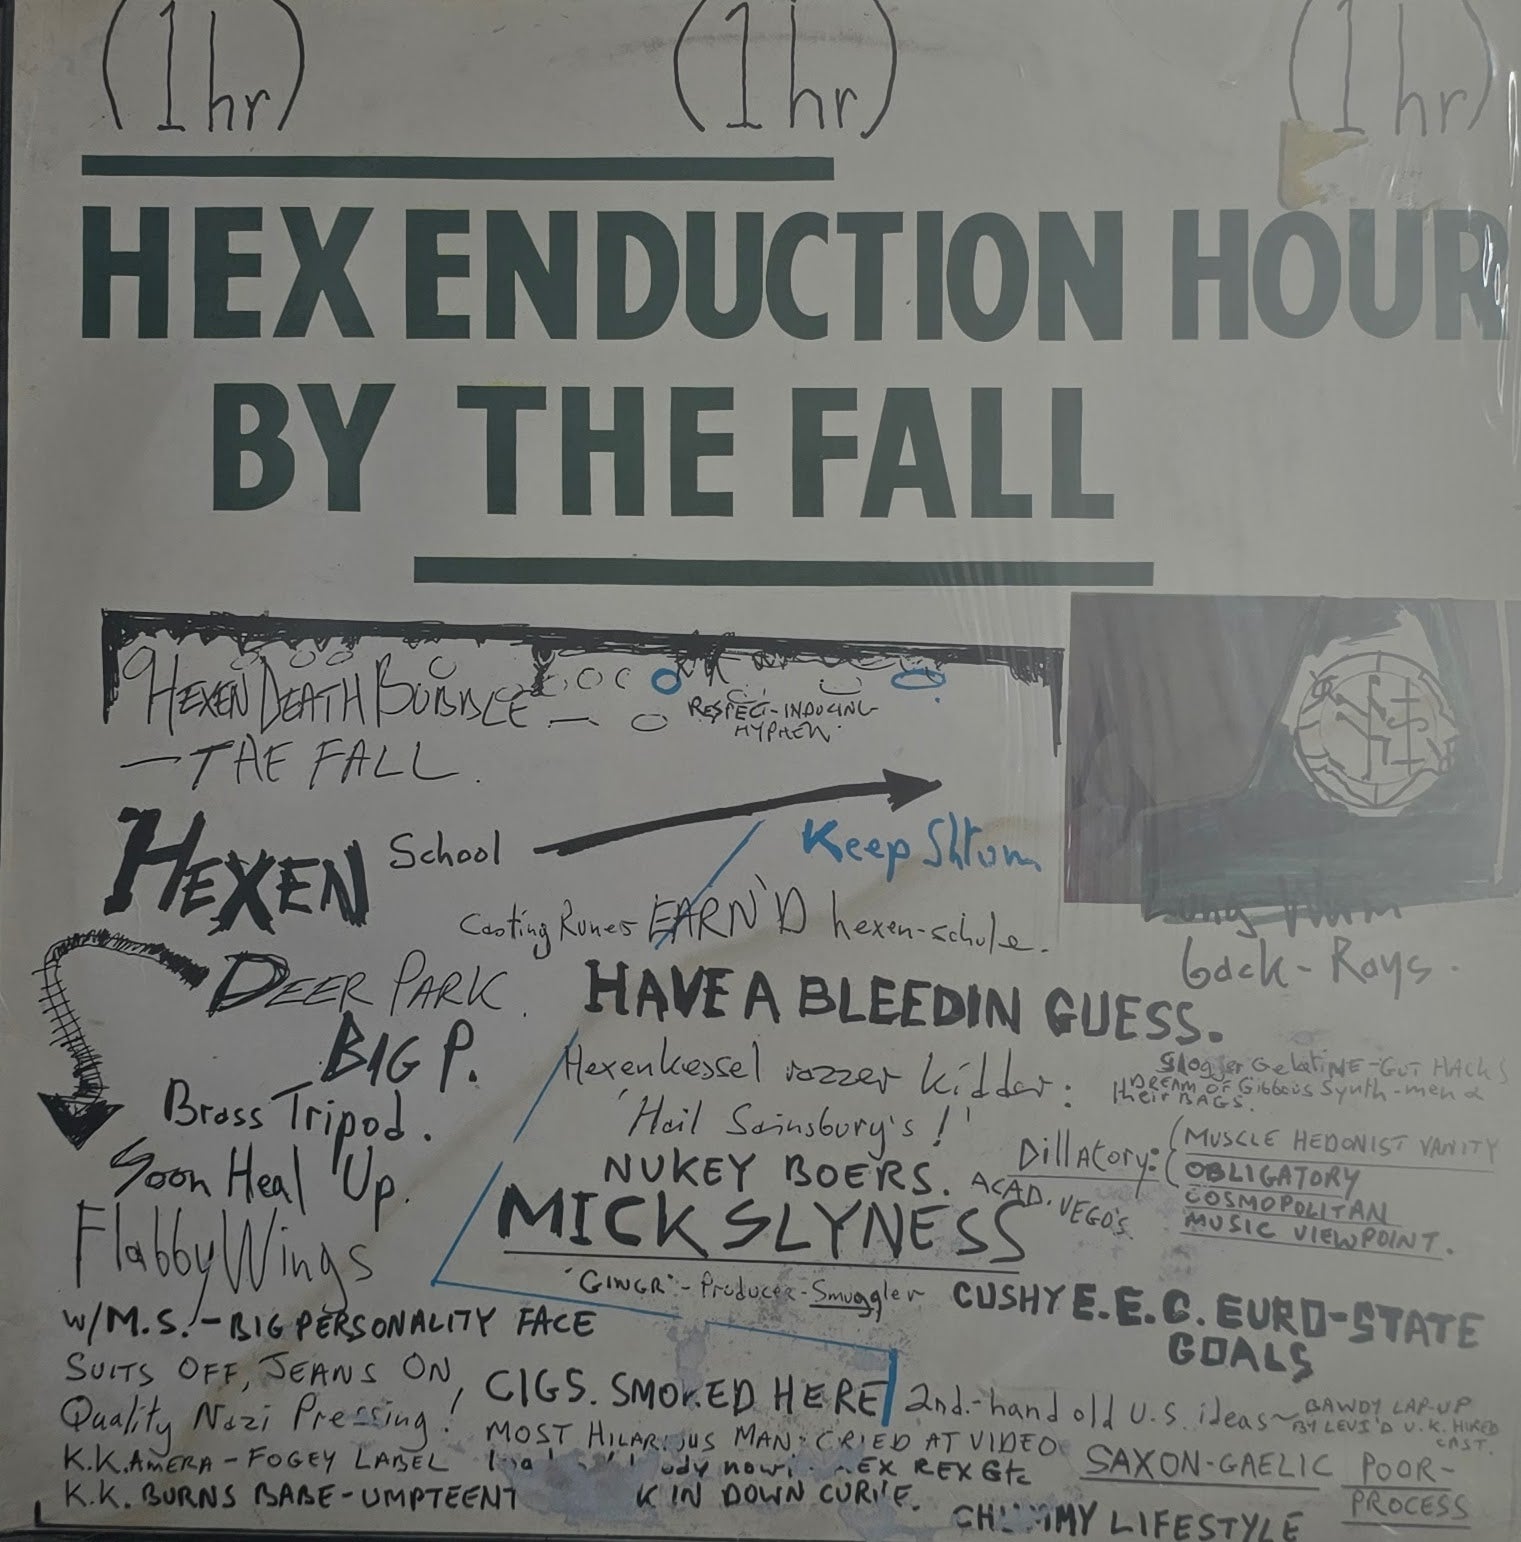 (1hr) (1hr) (1hr)
HEX ENDUCTION HOUR
BY THE FALL
HEXEN DEATH BUBBLE
RESPECT-INDUCING
HYPHEN
— THE FALL.
HEXEN School
Keep Shtum
Casting Runes EARN'D hexen-schule.
Lung
back-Rays.
DEER PARK.
HAVE A BLEEDIN GUESS.
BIG P.
Hexenkessel rozzer kidder:
Slogger GelatiNE-GUT HACKS
DREAM OF Gibbous Synth-men &
their BAGS.
Brass Tripod.
'Hail Sainsbury's!'
DillAtory:
MUSCLE HEDONIST VANITY
OBLIGATORY
COSMOPOLITAN
MUSIC VIEWPOINT.
Soon Heal Up.
NUKEY BOERS.
ACAD. VEGO'S.
MICK SLYNESS
Flabby Wings
Producer-Smuggler
CUSHY E.E.C. EURO-STATE
GOALS
w/M.S.-BIG PERSONALITY FACE
SUITS OFF, JEANS ON,
CIGS. SMOKED HERE
2nd.-hand old U.S. ideas~
BAWDY LAP-UP
BY LEVI'D U.K. HIRED
CAST.
Quality Nazi Pressing!
MOST HILARIOUS MAN: CRIED AT VIDEO
K.K.AMERA - FOGEY LABEL
now REX Etc
SAXON-GAELIC POOR-
PROCESS
K.K. BURNS BABE-UMPTEENT
K IN DOWN CURVE.
LIFESTYLE